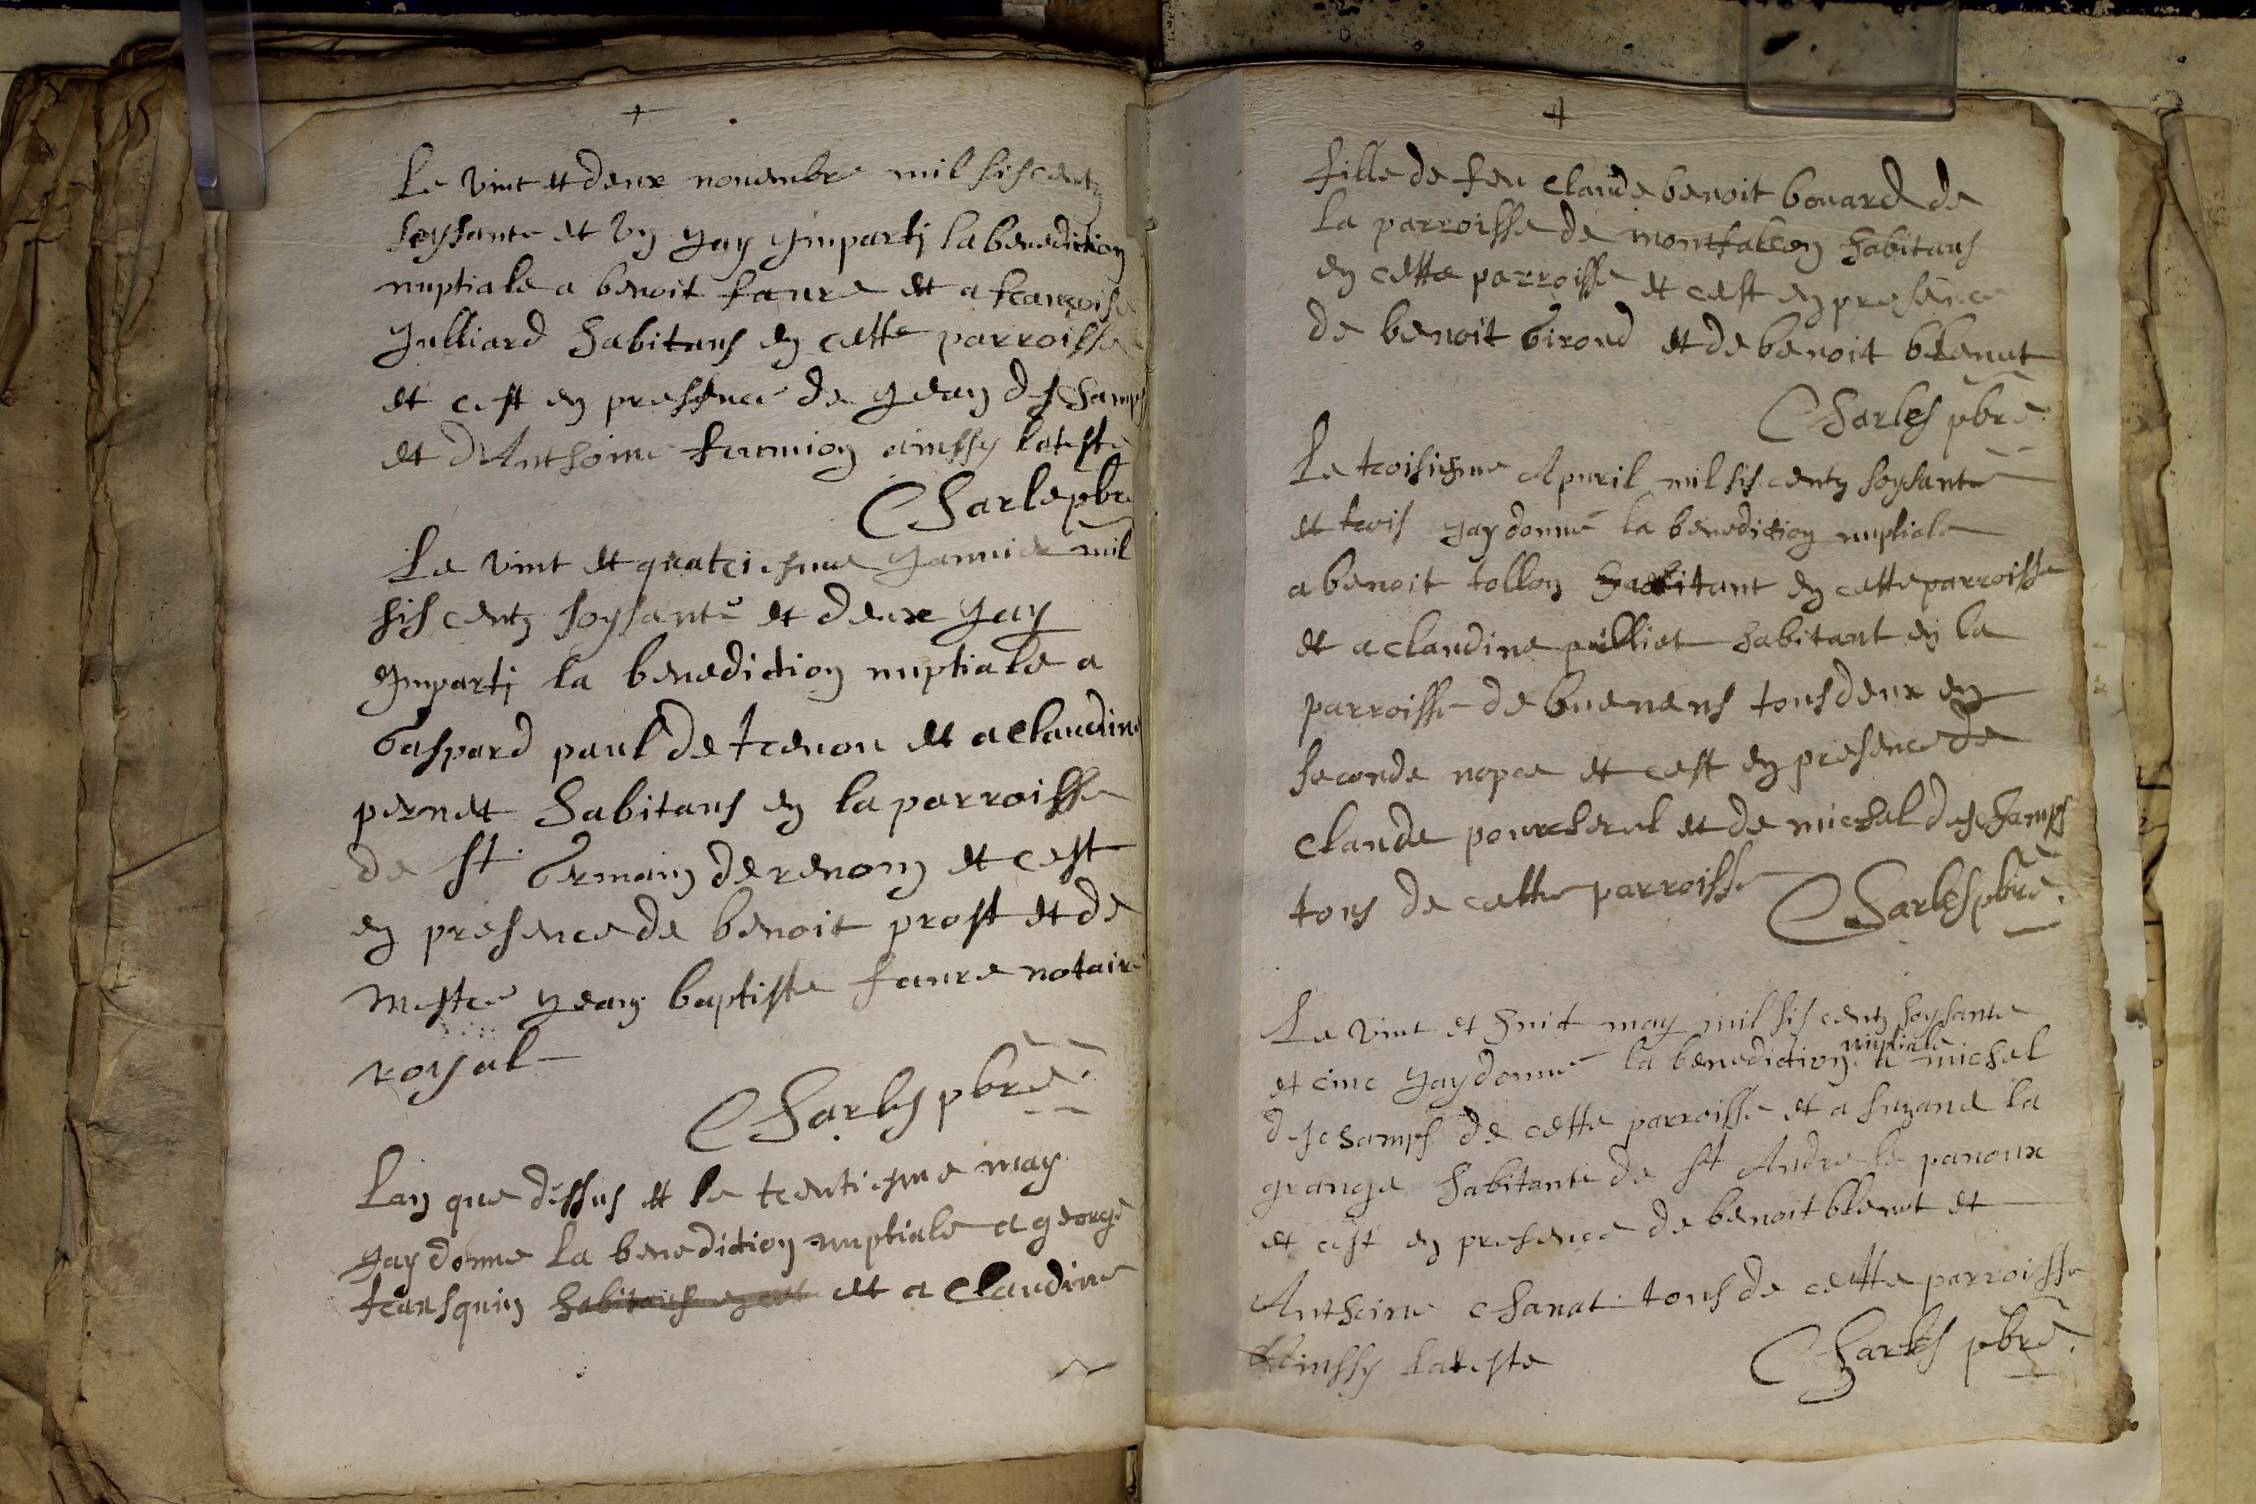 +
Le vint et deux novembre mil sis centz
soysante et un Jay Jmparti la benediction
nuptiale a benoit faure et a francoise
Julliard habitans en cette parroisse
et cest en presence de Jean deschamps
et dAnthoine fermion ainssy latesté
Charle pbre
Le vint et quatriesme Janvier mil
sis centz soysante et deux Jay
Jmparti la benediction nuptiale a
Gaspard paul de trevou et a claudine
pernet habitans en la parroisse
de st Germain de renom et cest
en presence de benoit prost et de
mestre Jean baptiste faure notaire
royal
Charles pbre
Lan que dessus et le trentiesme may
Jay donne la benediction nuptiale a george
transquin habitans en cet et a claudine
+
fille de feu claude benoit bouard de
la parroisse de montfalcon habitans
en cette parroisse et cest en presence
de benoit Giroud et de benoit blenut
Charles pbre
Le troisiesme Apvril mil sis centz soysante
et trois Jay donné la benediction nuptiale
a benoit tollon habitant en cette parroisse
et a claudine pilliet habitant en la
parroisse de buenens tous deux en
seconde nopce et cest en presence de
claude pourcherel et de michel deschamps
tous de cette parroisse Charles pbre
Le vint et huit may mil sis centz soysante
et cinc Jay donné la benediction nuptiale a michel
deschamps de cette parroisse et a suzane la
grange habitante de st Andre le panoux
et cest en presence de benoit blenut et
Anthoine chanat tous de cette parroisse
Ainssy lateste Charles pbre